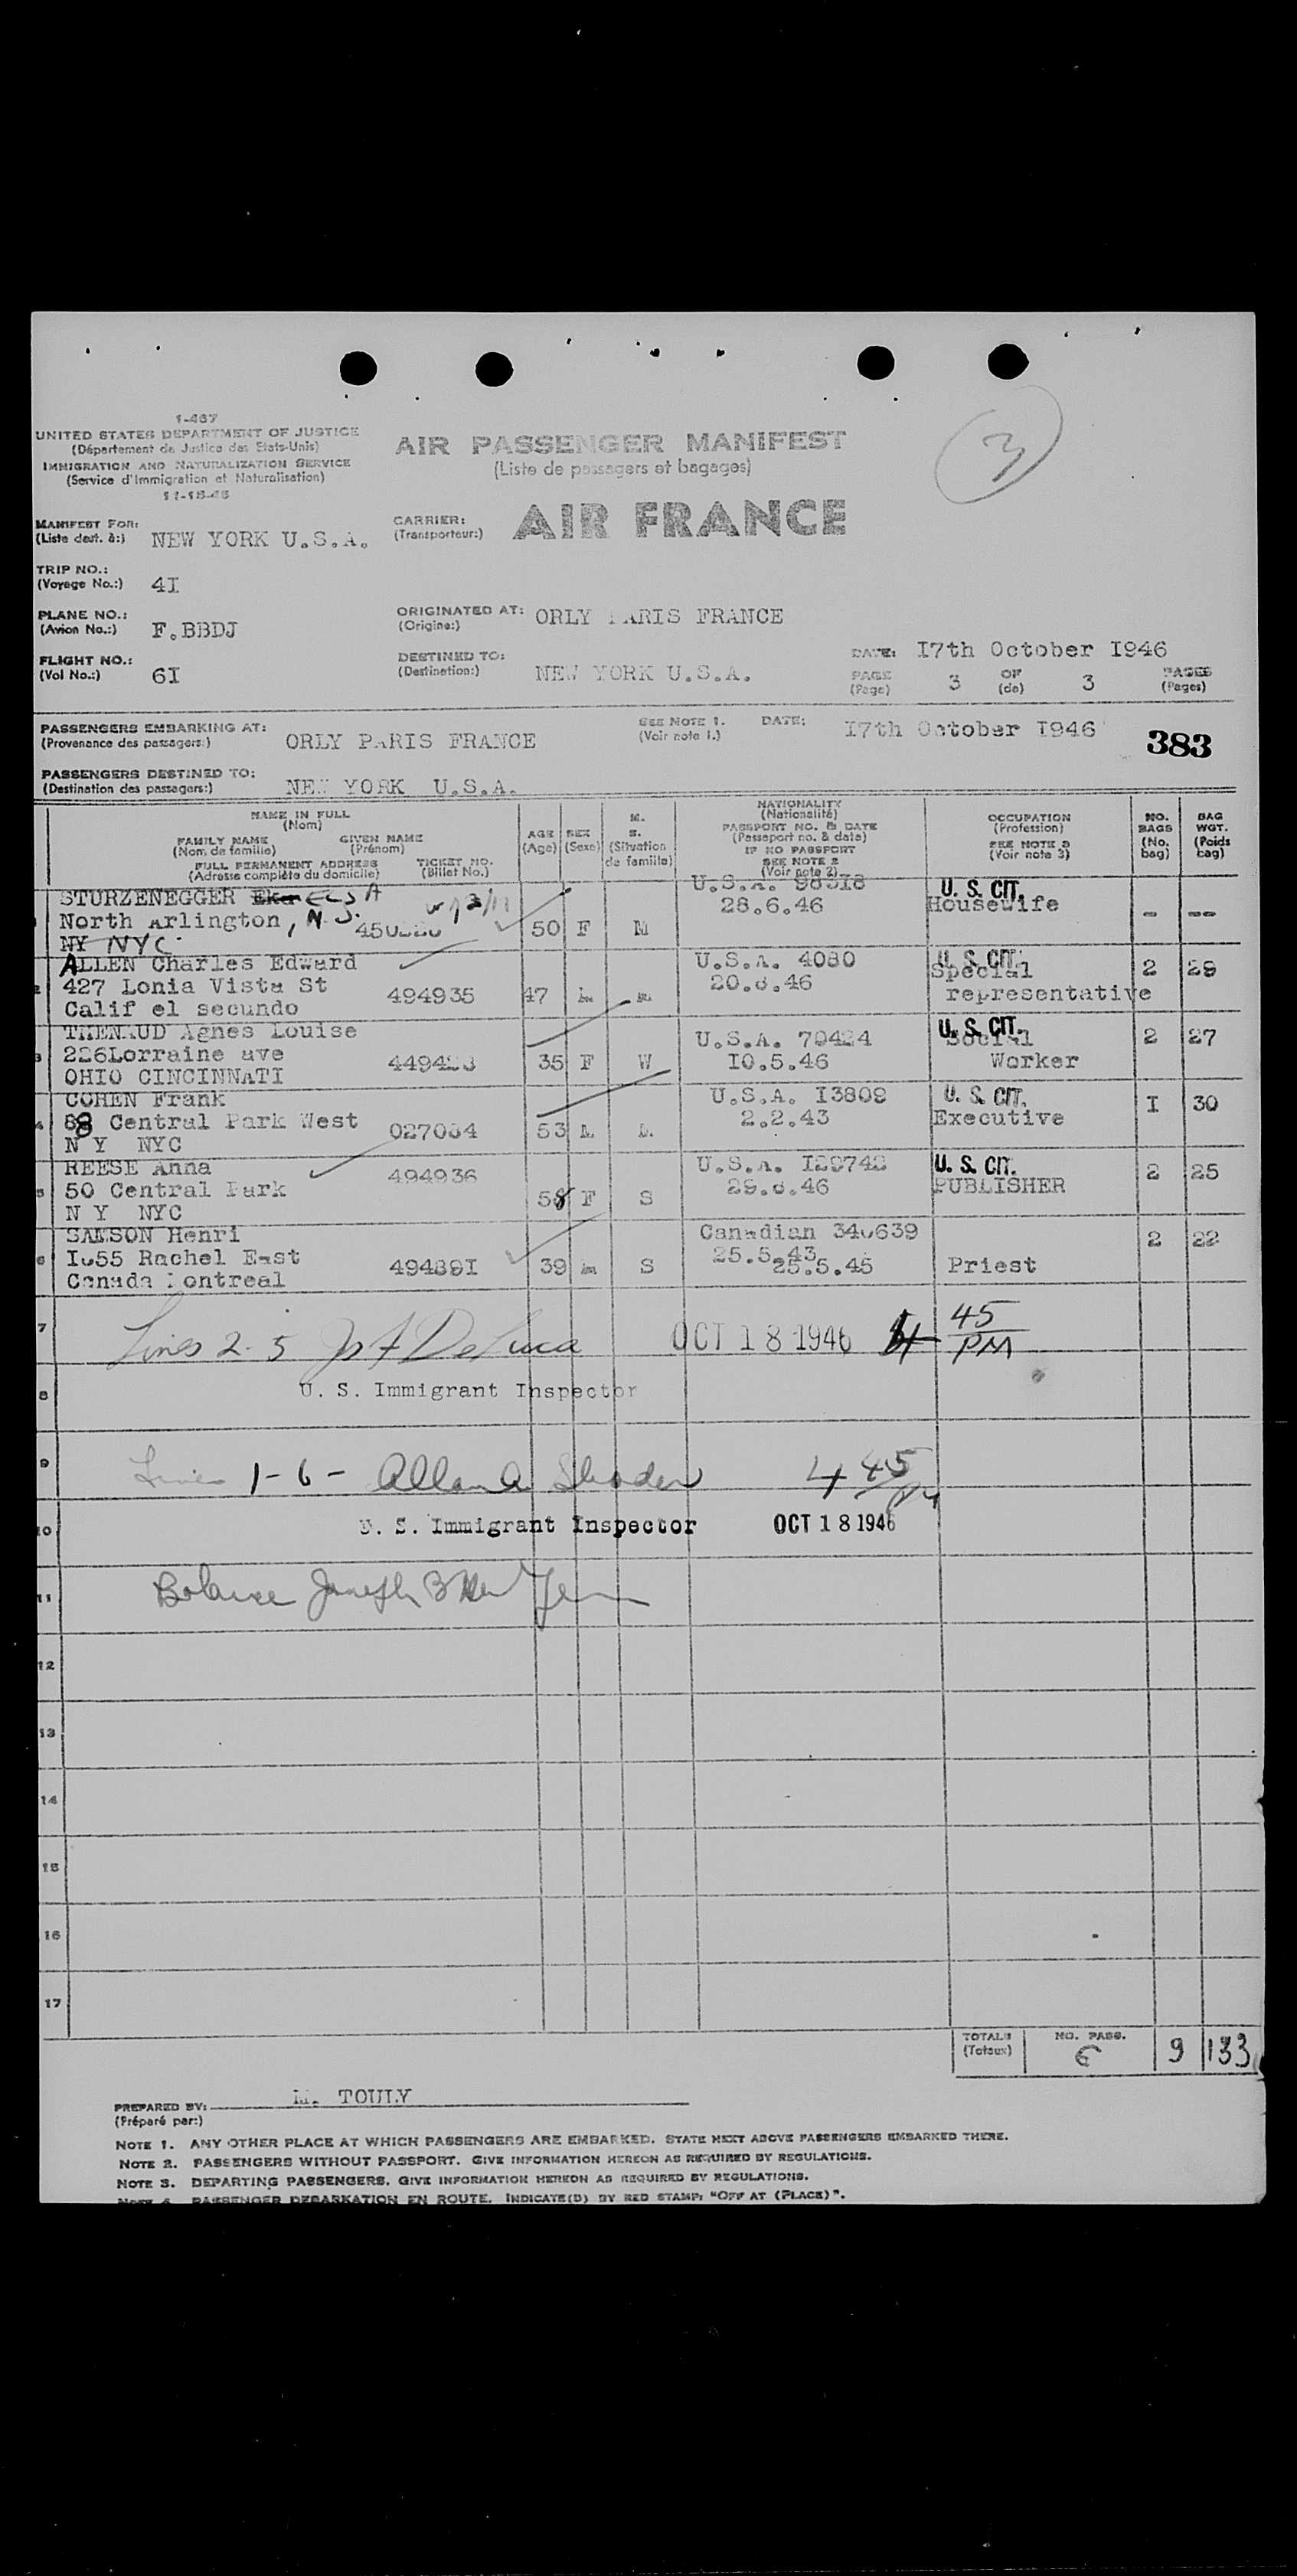 3
1-467
UNITED STATES DEPARTMENT OF JUSTICE
(Département de Justice des Etats-Unis)
IMMIGRATION AND NATURALIZATION SERVICE
(Service d'Immigration et Naturalisation)
AIR PASSENGER MANIFEST
(Liste de passagers et bagages)
MANIFEST FOR:
(Liste dest. à:) NEW YORK U.S.A.
CARRIER:
(Transporteur:) AIR FRANCE
TRIP NO.:
(Voyage No.:) 4I
PLANE NO.:
(Avion No.:) F.BBDJ
ORIGINATED AT:
(Origine:) ORLY PARIS FRANCE
FLIGHT NO.:
(Vol No.:) 6I
DESTINED TO:
(Destination:) NEW YORK U.S.A.
DATE: I7th October I946
PAGE 3 OF 3 PAGES
(Page) (de) (Pages)
PASSENGERS EMBARKING AT:
(Provenance des passagers:) ORLY PARIS FRANCE
SEE NOTE 1.
(Voir note 1.)
DATE: I7th October I946
383
PASSENGERS DESTINED TO:
(Destination des passagers:) NEW YORK U.S.A.
NAME IN FULL
(Nom)
FAMILY NAME GIVEN NAME
(Nom de famille) (Prénom)
FULL PERMANENT ADDRESS TICKET NO.
(Adresse complète du domicile) (Billet No.)
AGE
(Age)
SEX
(Sexe)
M.
S.
(Situation
de famille)
NATIONALITY
(Nationalité)
PASSPORT NO. & DATE
(Passeport no. & date)
IF NO PASSPORT
SEE NOTE 2
(Voir note 2)
OCCUPATION
(Profession)
SEE NOTE 3
(Voir note 3)
NO.
BAGS
(No.
bag)
BAG
WGT.
(Poids
bag)
STURZENEGGER ELSA U.S.A. U. S. CIT.
North Arlington, N.J. 50 F M 28.6.46 Housewife - --
NY NYC
ALLEN Charles Edward U.S.A. 4080 U. S. CIT. 2 29
427 Lonia Vista St 494935 47 Special
Calif el secundo representative
THENAUD Agnes Louise U.S.A. 70424 U. S. CIT. Social 2 27
226Lorraine ave 35 F W I0.5.46 Worker
OHIO CINCINNATI
COHEN Frank U.S.A. I3809 U. S. CIT. I 30
88 Central Park West 53 2.2.43 Executive
N Y NYC
REESE Anna 494936 U.S.A. U. S. CIT. 2 25
50 Central Park 58 F S PUBLISHER
N Y NYC
SAMSON Henri Canadian 2 22
Rachel East 39 S 25.5.43 25.5.45 Priest
Canada Montreal
Lines 2-5 De Luca OCT 18 1946 4 45 PM
U. S. Immigrant Inspector
Lines 1-6 - Allan A 4 45 PM
U. S. Immigrant Inspector OCT 18 1946
Joseph
1
2
3
4
5
6
7
8
9
10
11
12
13
14
15
16
17
TOTALS
(Totaux)
NO. PASS.
6 9 133
PREPARED BY: M. TOULY
(Préparé par:)
NOTE 1. ANY OTHER PLACE AT WHICH PASSENGERS ARE EMBARKED. STATE NEXT ABOVE PASSENGERS EMBARKED THERE.
NOTE 2. PASSENGERS WITHOUT PASSPORT. GIVE INFORMATION HEREON AS REQUIRED BY REGULATIONS.
NOTE 3. DEPARTING PASSENGERS. GIVE INFORMATION HEREON AS REQUIRED BY REGULATIONS.
NOTE 4. PASSENGER DEBARKATION EN ROUTE. INDICATE(D) BY RED STAMP: "OFF AT (PLACE)".